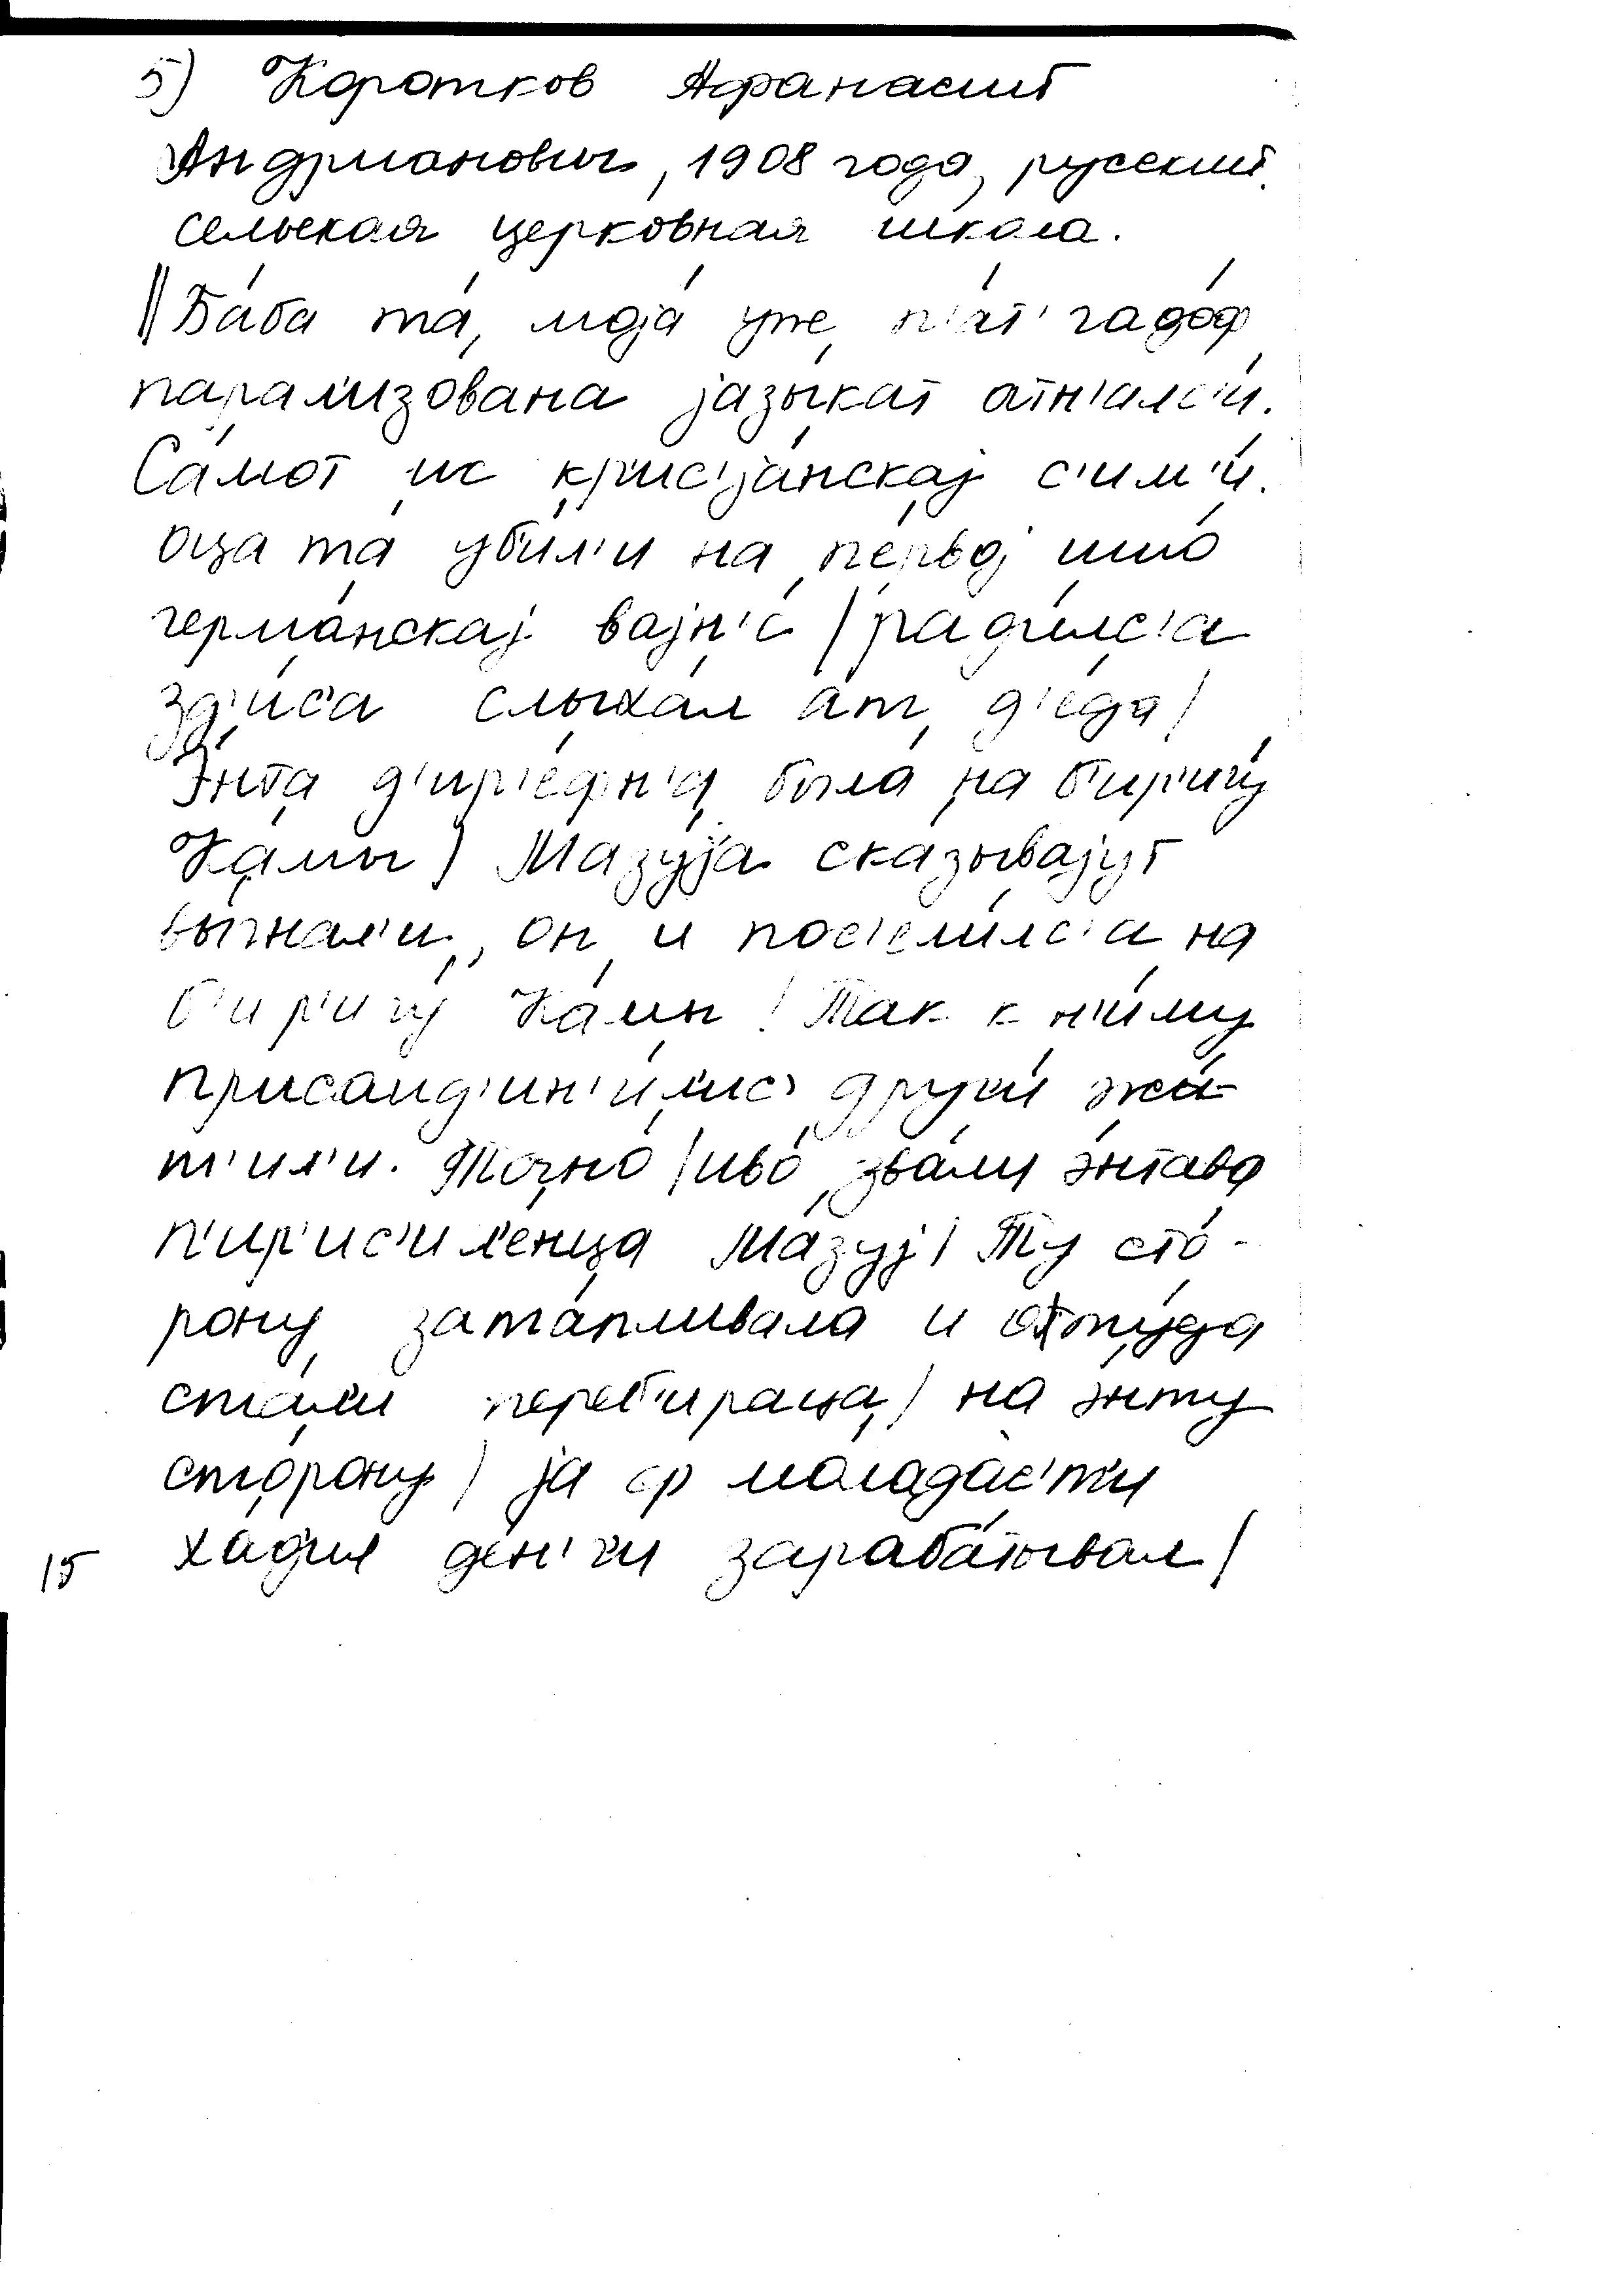 5) Коротков Афанасий
Андрианович, 1908 года, русский
сельская церковная школа.
‖ Ба́ба та́, моја́ уже́, п'а́т' гадо́ф
парал'изо́вана јазы́кат атн'алс'и́.
Са́мот ис кр'ис'јанскај с'им'и́.
Оца та́ уби́л'и на п'е́рвој ишо́
герма́нскај вајн'е́ / рад'и́лс'а
зд'и́с'а слыха́л а́т д'е́да /
Э́нта д'ир'е́фн'а была́ на б'ир'игу́
Ка́мы / Мазу́ја ска́зывајут
вы́гнал'и, он и пос'ели́лс'а на
б'ир'игу́ Ка́мы / Так к н'иму́
присаид'ин'и́лис' други́и жы́-
т'ил'и. То́чно / иво́ зва́ли э́нтава
п'ир'ис'ил'е́нца Мазу́ј / Ту сто́-
рону зата́пливала и отту́да
ста́л'и переб'ира́ца / на э́нту
сто́рону / ја ф мо́ладас'т'и
хад'и́л де́н'г'и зараба́тывал /
15